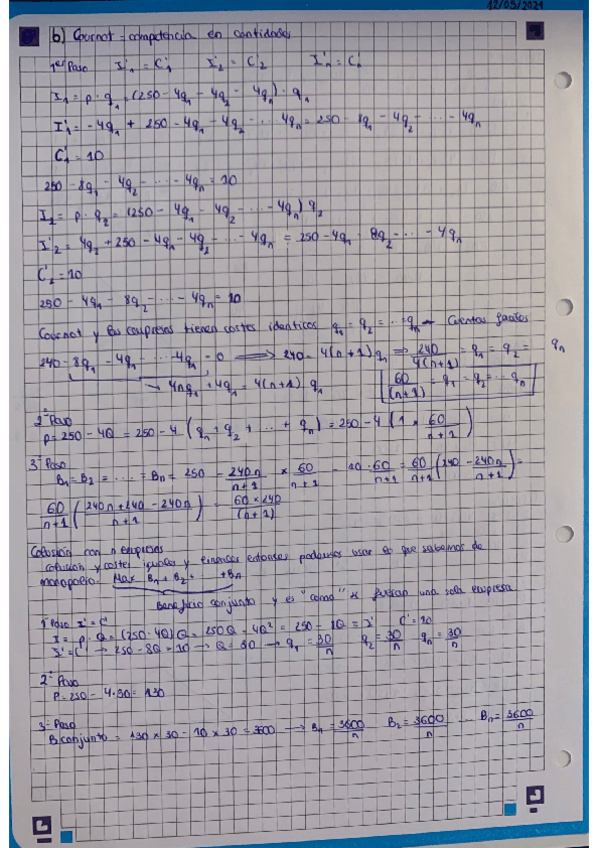 12/05/2021
b) Cournot = competencia en cantidades
1er Paso I'₁ = C'₁ I'₂ = C'₂ I'ₙ = C'ₙ
I₁ = p · q₁ = (250 - 4q₁ - 4q₂ - 4qₙ) · q₁
I'₁ = -4q₁ + 250 - 4q₁ - 4q₂ - ... 4qₙ = 250 - 8q₁ - 4q₂ - ... - 4qₙ
C'₁ = 10
250 - 8q₁ - 4q₂ - ... - 4qₙ = 10
I₂ = p · q₂ = (250 - 4q₁ - 4q₂ - ... - 4qₙ) q₂
I'₂ = 4q₂ + 250 - 4q₁ - 4q₂ - ... - 4qₙ = 250 - 4q₁ - 8q₂ - ... - 4qₙ
C'₂ = 10
250 - 4q₁ - 8q₂ - ... - 4qₙ = 10
Cournot y las empresas tienen costes identicos q₁ = q₂ = ... = qₙ → Cuentas faciles
240 - 8q₁ - 4q₁ - ... - 4q₁ = 0 ⟹ 240 = 4(n+1) q₁ ⟹ 240/4(n+1) = q₁ = q₂ = qₙ
→ 4nq₁ + 4q₁ = 4(n+1) q₁ 60/(n+1) = q₁ = q₂ = ... qₙ
2º Paso
p = 250 - 4Q = 250 - 4 (q₁ + q₂ + ... + qₙ) = 250 - 4 (n × 60/n+1)
3º Paso
B₁ = B₂ = ... = Bₙ = 250 - 240n/n+1 × 60/n+1 - 10 · 60/n+1 = 60/n+1 (240 - 240n/n+1) =
60/n+1 (240n + 240 - 240n/n+1) = 60 × 240/(n+1)
Colusión con n empresas
colusión y costes iguales y entonces podemos usar lo que sabemos de
monopolio. Max B₁ + B₂ + ... + Bn
Beneficio conjunto y es "como" si fueran una sola empresa
1º Paso I' = C'
I = p · Q = (250 - 4Q) Q = 250Q - 4Q² = 250 - 8Q = I' C' = 10
I' = C' → 250 - 8Q = 10 → Q = 30 → q₁ = 30/n q₂ = 30/n qₙ = 30/n
2º Paso
P = 250 - 4·30 = 130
3º Paso
B conjunto = 130 × 30 - 10 × 30 = 3600 → B₁ = 3600/n B₂ = 3600/n ... Bₙ = 3600/n